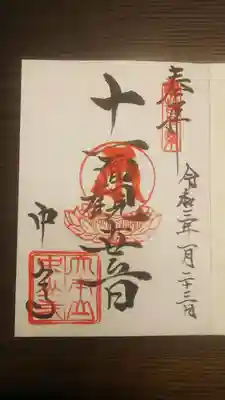 奉拝
令和三年一月二十三日
十一面観世音
中山寺